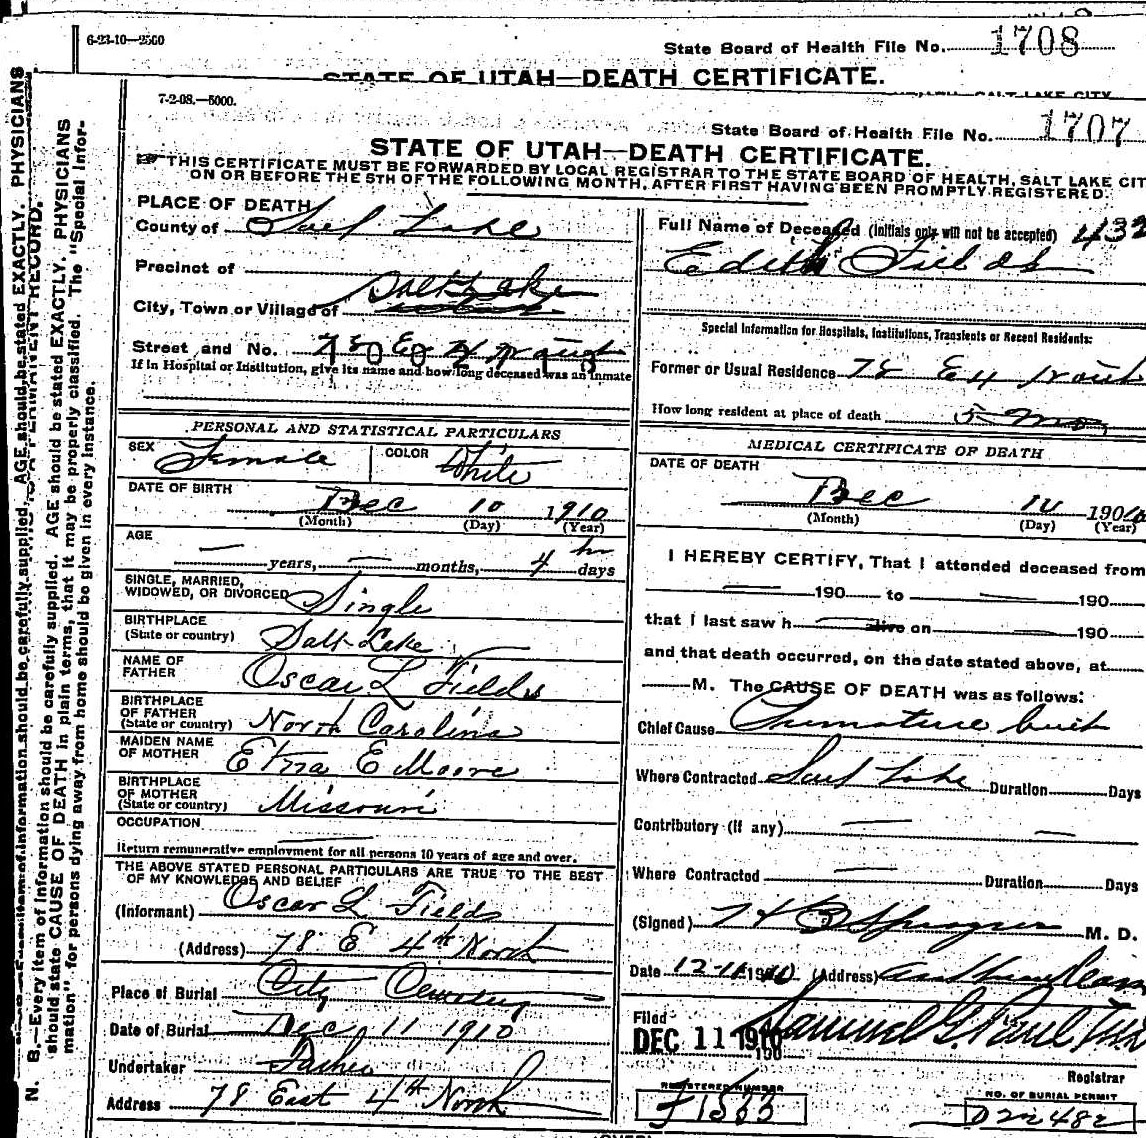 6-23-10—2500
State Board of Health File No. 1708
STATE OF UTAH—DEATH CERTIFICATE.
7-2-08.—5000.
State Board of Health File No. 1707
STATE OF UTAH—DEATH CERTIFICATE.
THIS CERTIFICATE MUST BE FORWARDED BY LOCAL REGISTRAR TO THE STATE BOARD OF HEALTH, SALT LAKE CIT
ON OR BEFORE THE 5TH OF THE FOLLOWING MONTH, AFTER FIRST HAVING BEEN PROMPTLY REGISTERED.
N. B.—Every item of information should be carefully supplied. AGE should be stated EXACTLY. PHYSICIANS
should state CAUSE OF DEATH in plain terms, that it may be properly classified. The "Special Infor-
mation" for persons dying away from home should be given in every instance.
PLACE OF DEATH
County of Salt Lake
Precinct of
City, Town or Village of Salt Lake
Street and No. 78 E 4 North
If in Hospital or Institution, give its name and how long deceased was an inmate
PERSONAL AND STATISTICAL PARTICULARS
SEX Female COLOR White
DATE OF BIRTH
Dec 10 1910
(Month) (Day) (Year)
AGE
— years, — months, 4 hr days
SINGLE, MARRIED,
WIDOWED, OR DIVORCED Single
BIRTHPLACE
(State or country) Salt Lake
NAME OF
FATHER Oscar L Fields
BIRTHPLACE
OF FATHER
(State or country) North Carolina
MAIDEN NAME
OF MOTHER E Moore
BIRTHPLACE
OF MOTHER
(State or country) Missouri
OCCUPATION
Return remunerative employment for all persons 10 years of age and over.
THE ABOVE STATED PERSONAL PARTICULARS ARE TRUE TO THE BEST
OF MY KNOWLEDGE AND BELIEF
(Informant) Oscar L Fields
(Address) 78 E 4th North
Place of Burial City Cemetery
Date of Burial Dec 11 1910
Undertaker Father
Address 78 East 4th North
Full Name of Deceased (Initials only will not be accepted) 432
Edith Fields
Special Information for Hospitals, Institutions, Transients or Recent Residents:
Former or Usual Residence 78 E 4 North
How long resident at place of death 5 mo
MEDICAL CERTIFICATE OF DEATH
DATE OF DEATH
Dec 10 1910
(Month) (Day) (Year)
I HEREBY CERTIFY, That I attended deceased from
— 190 to — 190
that I last saw h alive on — 190
and that death occurred, on the date stated above, at
— M. The CAUSE OF DEATH was as follows:
Chief Cause Premature birth
Where Contracted Salt Lake Duration Days
Contributory (if any) — —
Where Contracted — Duration Days
(Signed) H B Sprague M. D.
Date 12-11 1910 (Address)
Filed
DEC 11 1910
190
Samuel G. Paul
Registrar
REGISTERED NUMBER
J1533
NO. OF BURIAL PERMIT
D22482
(OVER)